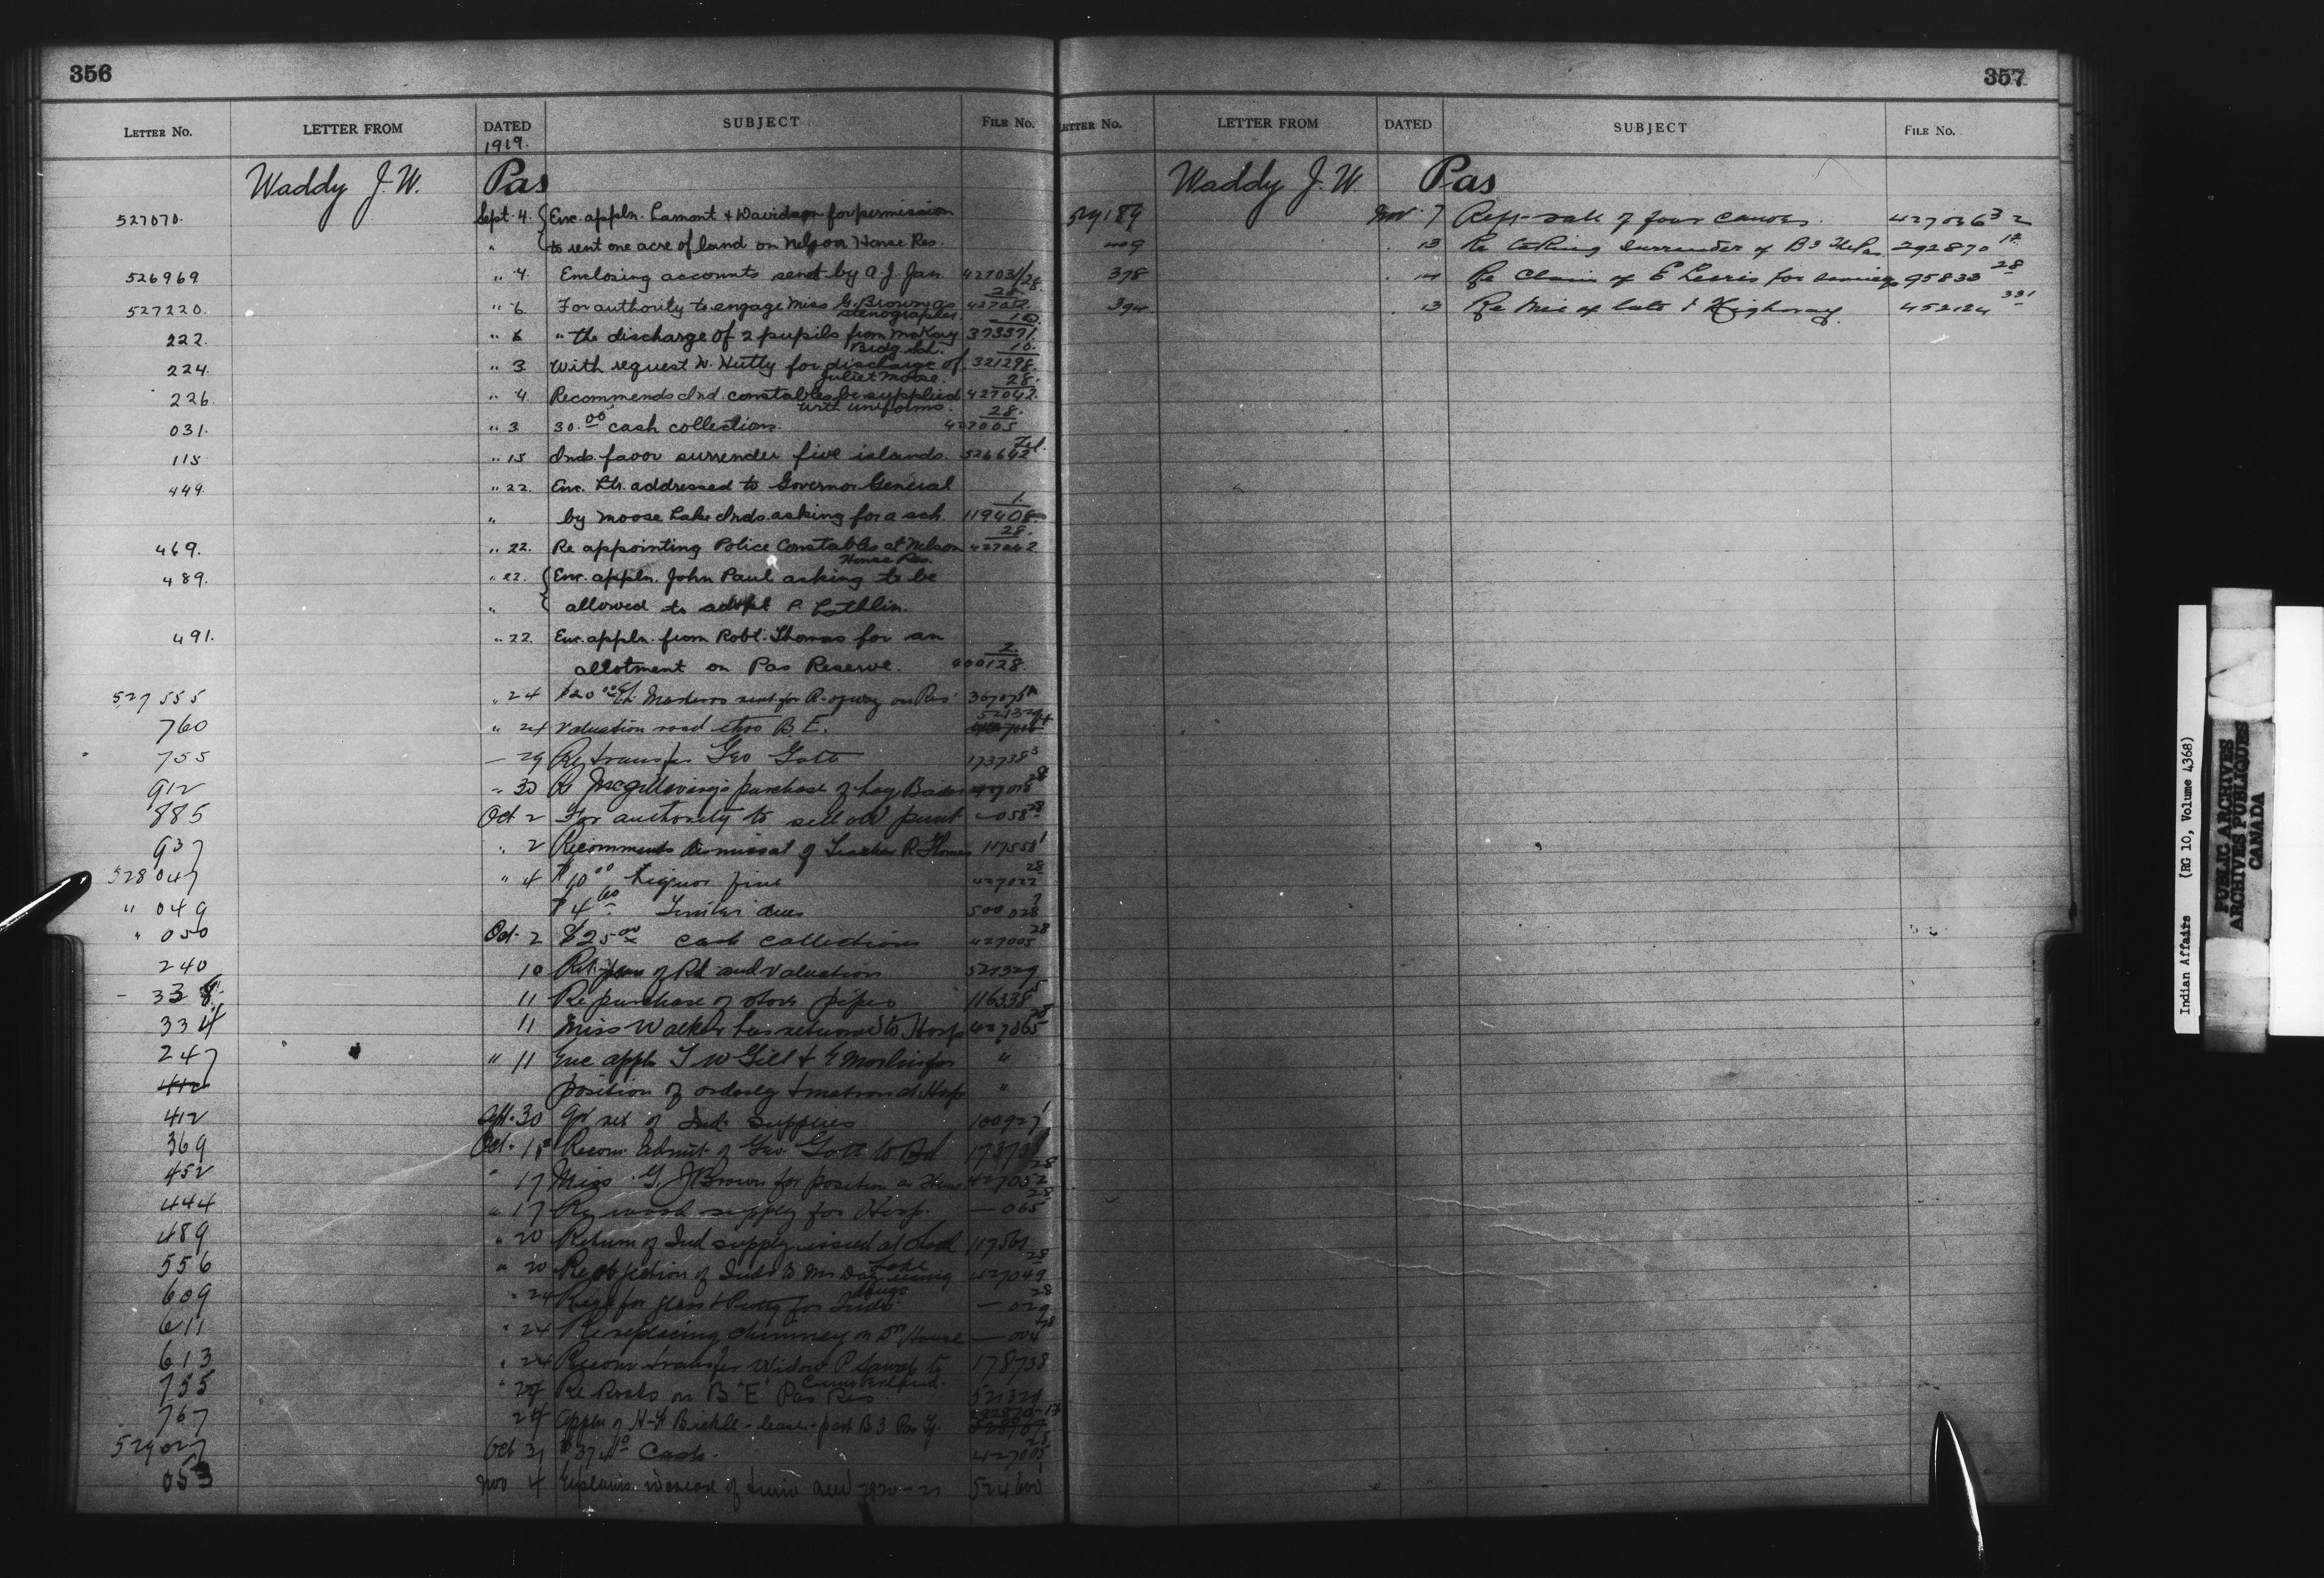 356
LETTER No. LETTER FROM DATED SUBJECT FILE No.
1919.
Waddy J. W. Pas
527070. Sept. 4. Enc. appln. Lamont & Davidson for permission
" to rent one acre of land on Nelson House Res.
526969 " 4. Enclosing accounts sent by A. J. Jan. 427031/28.
527220. " 6. For authority to engage Miss G. Brown as 28 427052.
stenographer
222. " 6 " the discharge of 2 pupils from McKay 10 373371.
Bldg. Sch.
224. " 3 With request W. Hutty for discharge of 10. 321298.
Juliet Moose.
226 " 4. Recommends Ind. constables be supplied 28. 427042.
with uniforms.
031. " 3 30.00 cash collection. 28. 427005
115 " 15 Inds. favor surrender five islands. 526642
449. " 22. Enc. Ltr. addressed to Governor General
" by Moose Lake Inds. asking for a sch. 1. 119408
469. " 22. Re appointing Police Constables at Nelson 28. 427042
House Res.
489. " 22. Enc. appln. John Paul asking to be
" allowed to adopt P. Lathlin.
491. " 22. Enc. appln. from Robt. Thomas for an
allotment on Pas Reserve. 2. 400128.
527555 " 24 $20.00 rent for R. of way on Res
760 " 24 Valuation road thro B. E. 521329
755 29 Re transfer Geo Gott 173738 3
912 " 30 Re McGillivrays purchase of hay 28
885 Oct 2 For authority to sell old punt 058 28
937 " 2 Recommends dismissal of Teacher R. 117551
528047 " 4 $10.00 Liquor fine 28 427022
" 049 $4.60 Timber dues 500028
" 050 Oct. 2 $25.00 Cash collections 28 427005
240 10 of Rd and valuation 521329
338 11 Re purchase of stove pipes 116338
334 11 Miss Walker has returned to Hosp 28 427065
247 " 11 Enc appln T W Gill & for "
412 position of orderly & matron at Hosp "
412 Sept. 30 of Ind. supplies 100927
369 Oct. 15 Recom. admit. of Geo Gott to Bd
452 " 17 Miss G. J Brown for position as 28 427052
444 " 17 Re wood supply for Hosp. 28 065
489 " 20 Return of Ind supply issued at 117561
556 " 20 Re objection of Inds to Mr 28 427049
drugs
609 " 24 Req. for glass & Putty for Inds 28 029
611 " 24 Re replacing chimney on Drs House 28 004
613 " 24 Recom transfer Widow P to 178738
Cumberland.
755 " 24 Re Roads on B "E" Pas Res 521329
767 24 Appln of H. F. Bickle - lease - part B 3 Pas 292870-12
529027 Oct 31 Cash. 28 427005
053 Nov 4 Explains increase of 1920-21 524600
357
LETTER No. LETTER FROM DATED SUBJECT FILE No.
Waddy J. W Pas
529189 Nov 7 sale of four canoes. 427036
409 13 Re taking surrender of B 3 The Pas 292870 12
378 14 Re claim of E for services 95833 28
394 13 Re of late Highway 452124
Indian Affairs (RG 10, Volume 4368)
PUBLIC ARCHIVES
ARCHIVES PUBLIQUES
CANADA